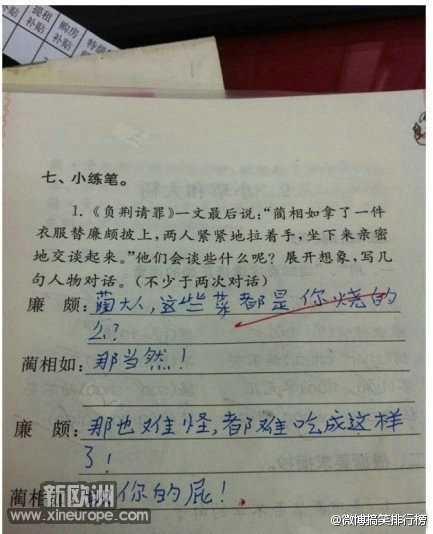 提租
补贴
购房
补贴
特级
七、小练笔。
1.《负荆请罪》一文最后说:“蔺相如拿了一件
衣服替廉颇披上,两人紧紧地拉着手,坐下来亲密
地交谈起来。”他们会谈些什么呢?展开想象,写几
句人物对话。(不少于两次对话)
廉 颇:蔺大人,这些菜都是你烧的
么?
蔺相如:那当然!
廉 颇:那也难怪,都难吃成这样
了!
蔺相如:你的屁!
新欧洲
www.xineurope.com
@微博搞笑排行榜